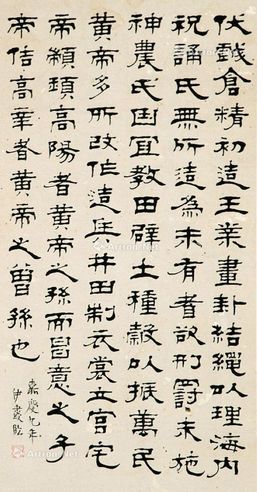 伏戲倉精初造王業畫卦結繩以理海内
祝誦氏無所造為未有耆欲刑罰未施
神農氏因宜教田辟土種穀以振萬民
黄帝多所改作造兵井田制衣裳立宫宅
帝顓頊高陽者黄帝之孫而昌意之子
帝佶高辛者黄帝之曾孫也
嘉慶